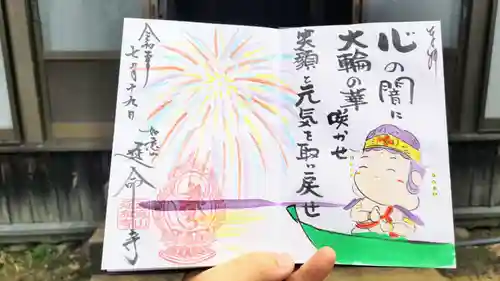 奉拝
心の闇に
大輪の華
咲かせ
笑顔と元気を取り戻せ
七月十九日
延命寺